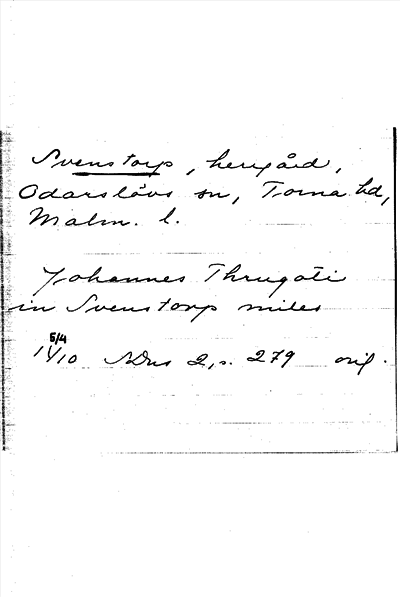 Svenstorp, herrgård,
Odarslövs sn, Torna hd,
Malm. l.
Johannes Thrugoti
in Svenstorp miles
5/4
1410 SDns 2, s. 279 orig.